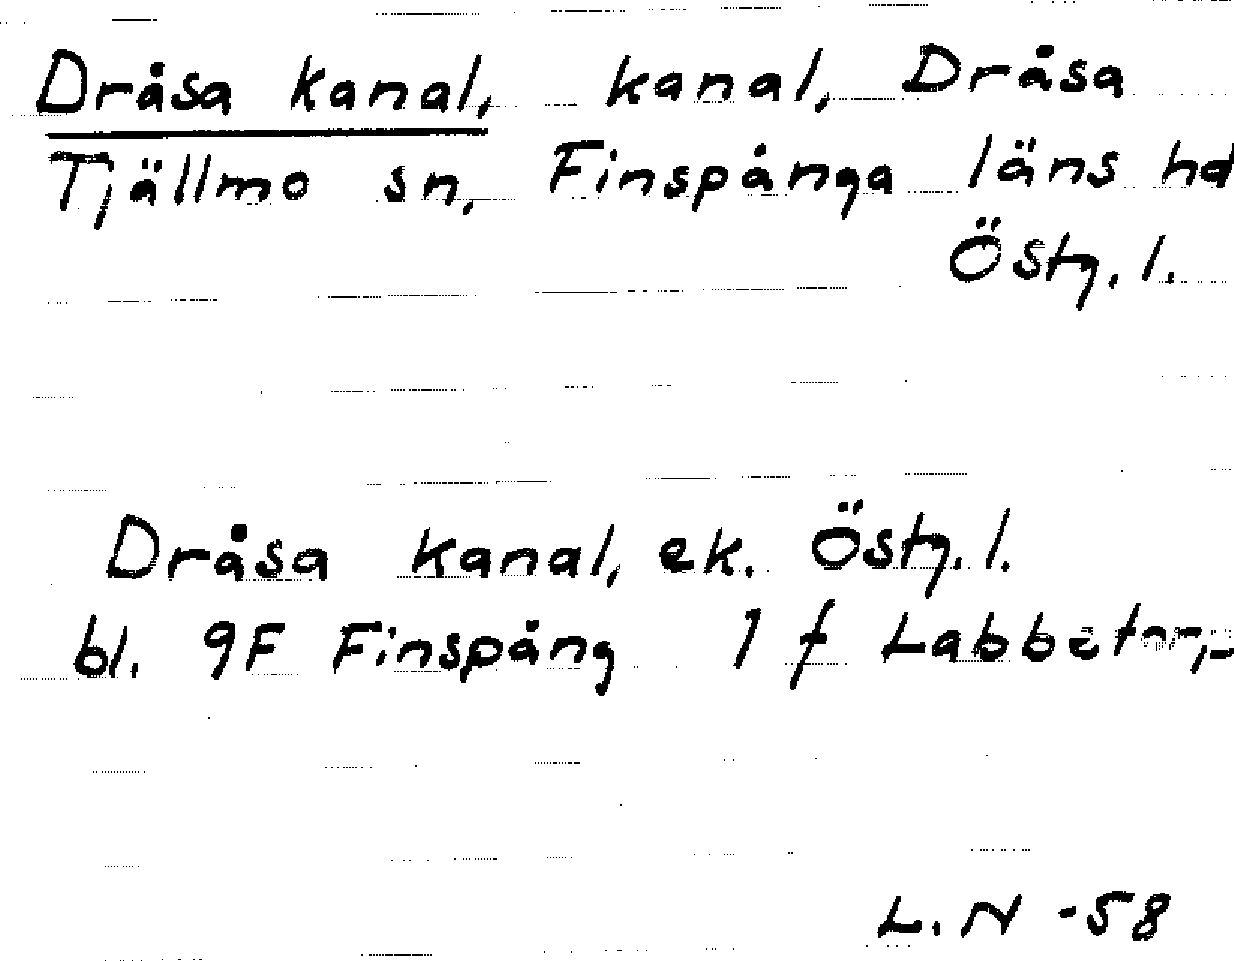 Dråsa kanal, kanal, Dråsa
Tjällmo sn, Finspånga läns hd
Östg. l.
Dråsa kanal, ek. Östg. l.
bl. 9F Finspång 1 f
L.N -58